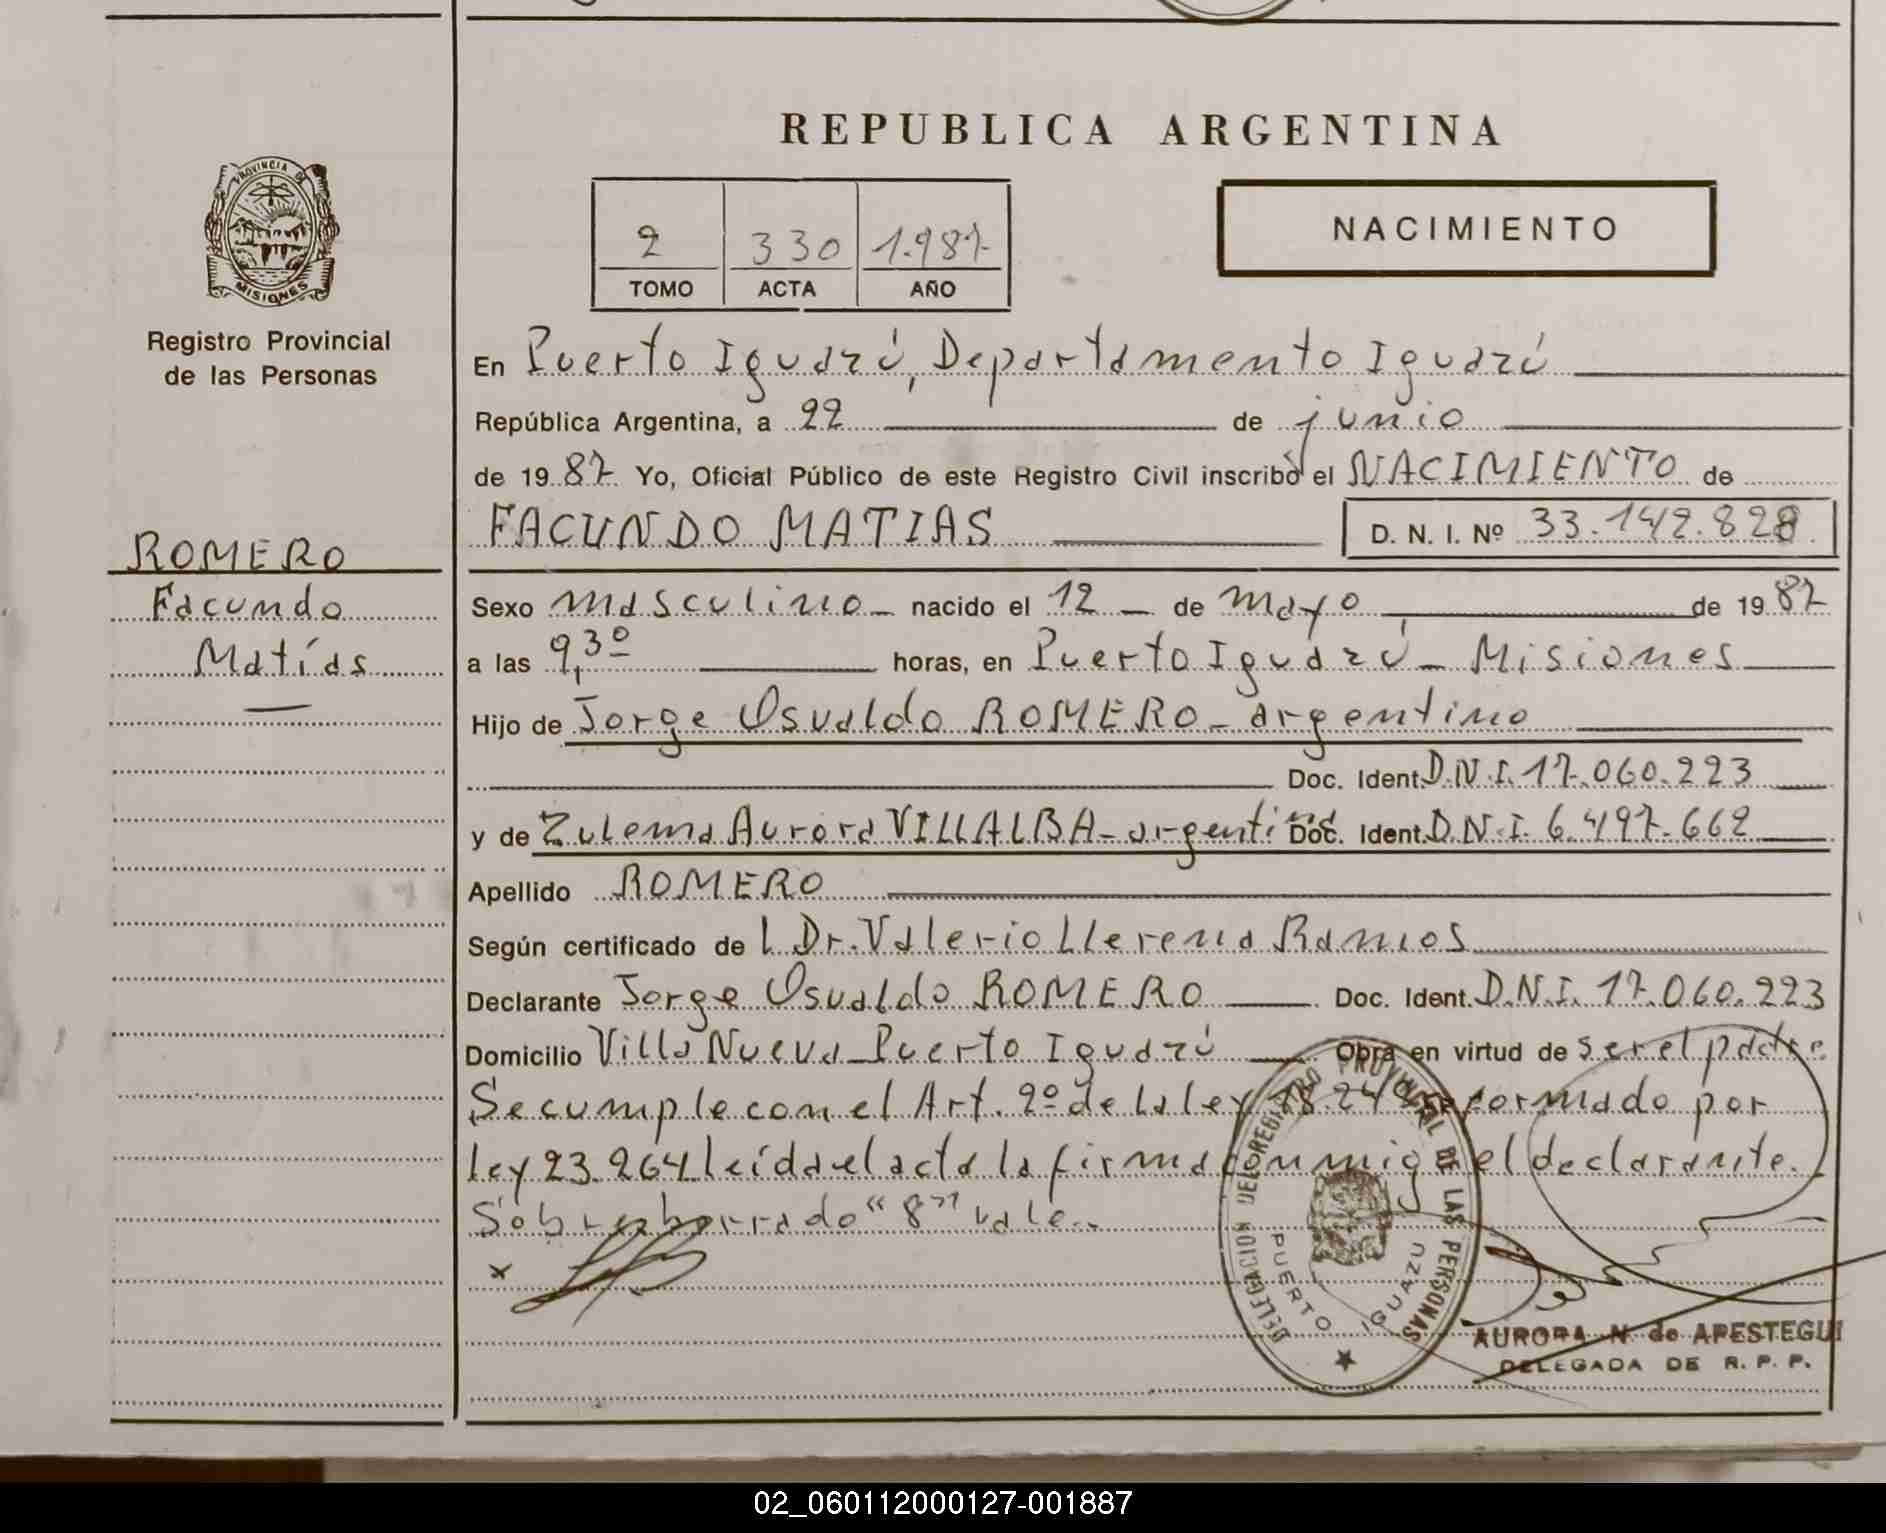 REPUBLICA ARGENTINA
PROVINCIA DE
MISIONES
Registro Provincial
de las Personas
2 330 1.987
TOMO ACTA AÑO
NACIMIENTO
En Puerto Iguazú, Departamento Iguazú
República Argentina, a 22 de junio
de 1987 Yo, Oficial Público de este Registro Civil inscribo el NACIMIENTO de
FACUNDO MATIAS D. N. I. Nº 33.142.828
ROMERO
Facundo
Matías
Sexo masculino nacido el 12 de mayo de 1987
a las 9,30 horas, en Puerto Iguazú - Misiones
Hijo de Jorge Osvaldo ROMERO - argentino
Doc. Ident. D.N.I. 17.060.223
y de Zulema Aurora VILLALBA - argentina Doc. Ident. D.N.I. 6.497.662
Apellido ROMERO
Según certificado de l Dr. Valerio Llerena Ramos
Declarante Jorge Osvaldo ROMERO Doc. Ident. D.N.I. 17.060.223
Domicilio Villa Nueva - Puerto Iguazú Obra en virtud de ser el padre
Se cumple con el Art. 2º de la ley 18.248 reformado por
ley 23.264 leída el acta la firma conmigo el declarante.
Sobreborrado "8" vale.
x
DELEGACION DEL REGISTRO PROVINCIAL DE LAS PERSONAS
PUERTO IGUAZU
AURORA N de APESTEGUI
DELEGADA DE R. P. P.
02_060112000127-001887